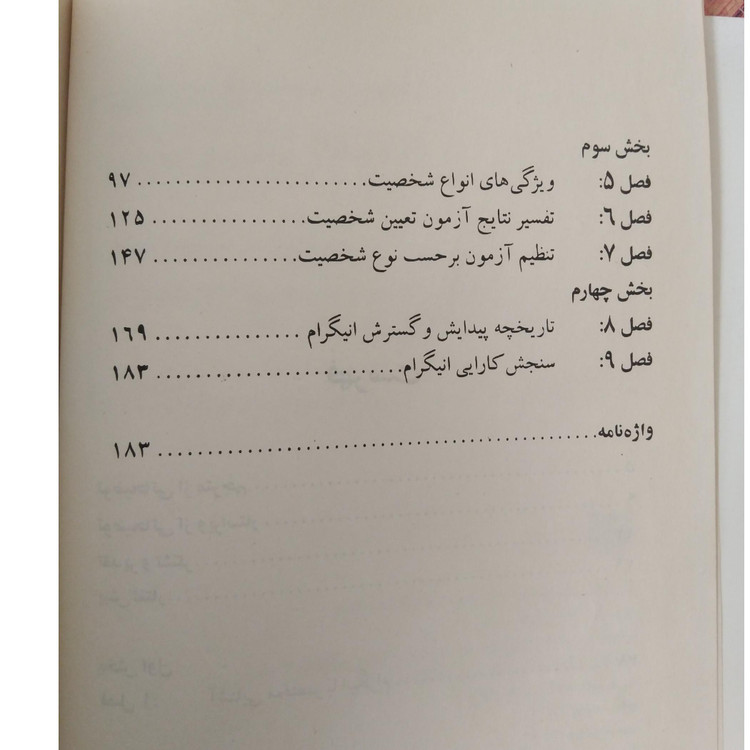 بخش سوم
فصل ۵: ویژگی‌های انواع شخصیت........................ ۹۷
فصل ۶: تفسیر نتایج آزمون تعیین شخصیت................ ۱۲۵
فصل ۷: تنظیم آزمون برحسب نوع شخصیت............... ۱۴۷
بخش چهارم
فصل ۸: تاریخچه پیدایش و گسترش انیگرام ............... ۱۶۹
فصل ۹: سنجش کارایی انیگرام......................... ۱۸۳
واژه‌نامه............................................. ۱۸۳